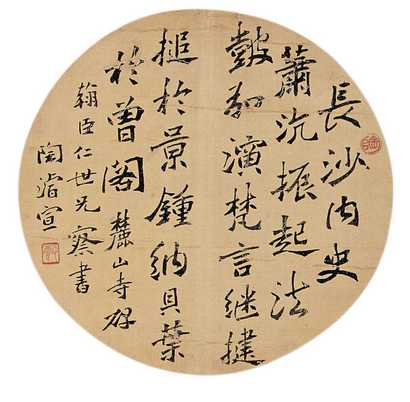 長沙內史
蕭沆振起法
皷弘演梵言継揵
搥於景鍾納貝葉
於曾閣麓山寺碑
翰臣仁世兄察書
陶濬宣